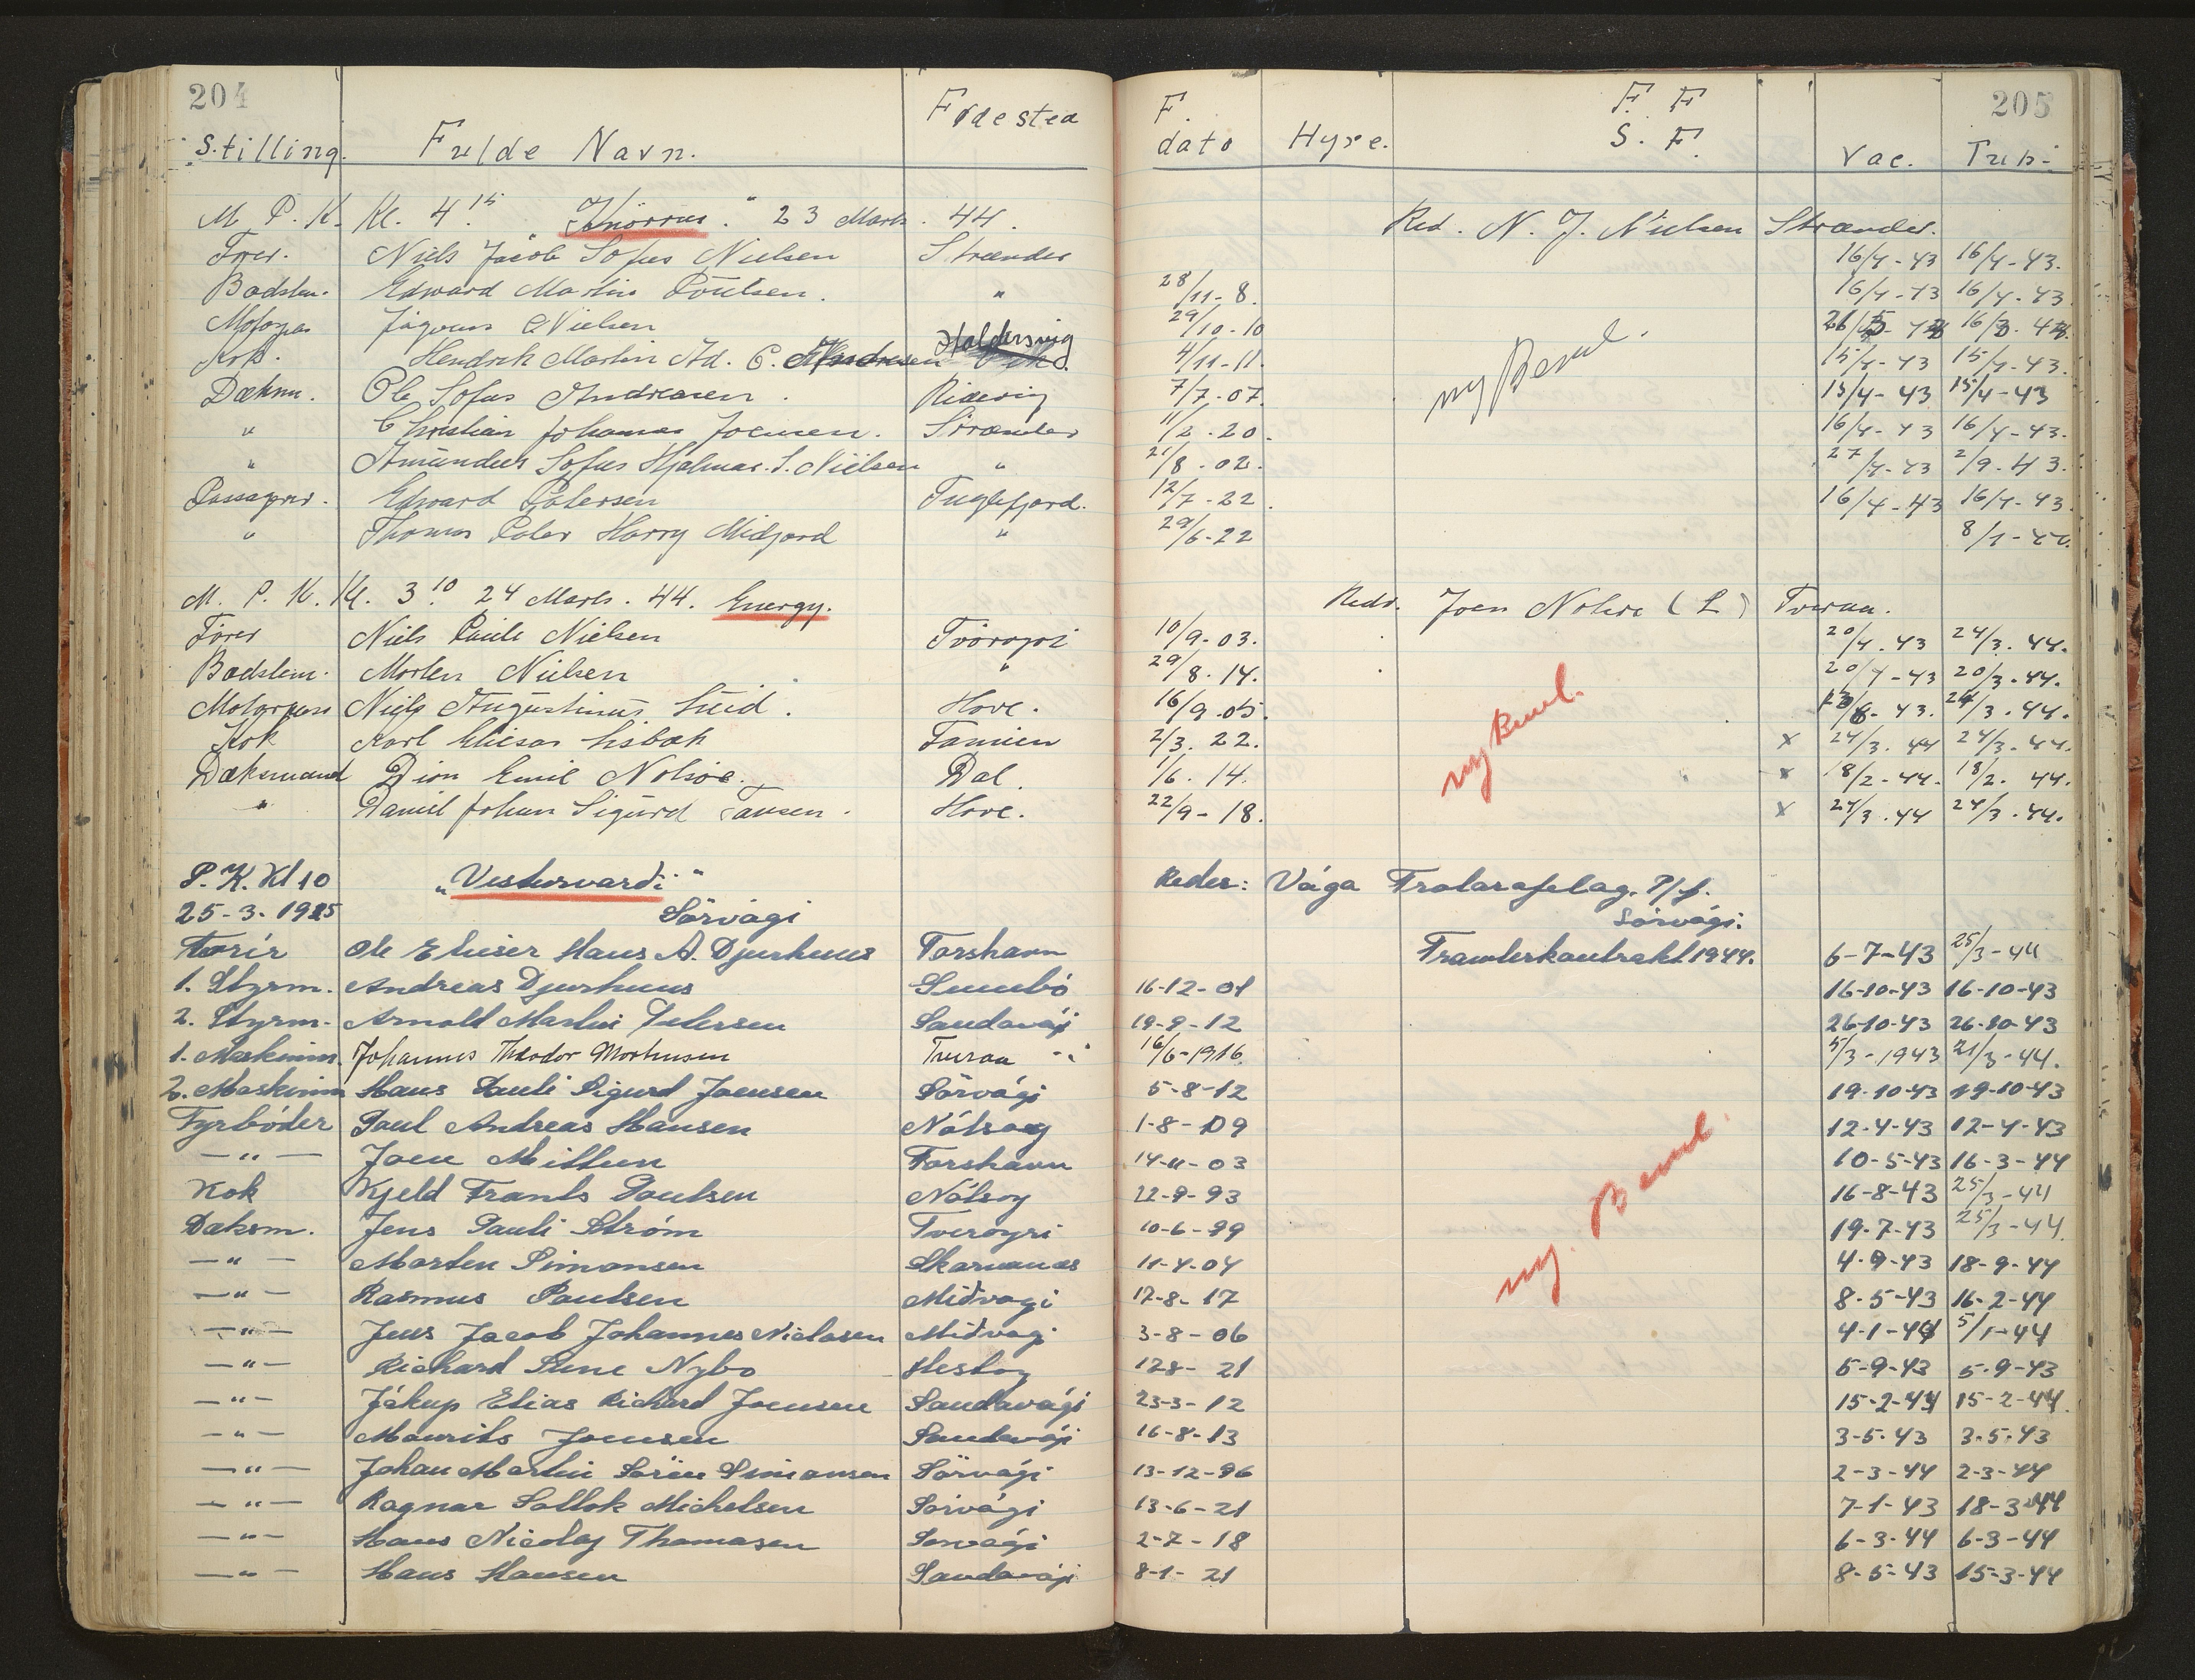 204 205
Stilling. Fulde Navn. Fødested F. dato Hyre. F. F S. F. Vac. Tub.
M. P. K. Kl. 4.15 „ " 23 Marts. 44. Red. N. J. Nielsen Strænder.
Fører. Niels Jacob Sofus Nielsen Strænder 16/4-43 16/4-43.
Bødstm. Edward Martin Poulsen. " 28/11-8. 16/4-43 16/4-43
Motorpas Nielsen 29/10-10
Kok. Hendrik Martin Ad. C. Haldersvig 4/11-11. 15/4-43 15/4-43.
Dæksm. Ole Sofus Andreasen. 7/7-07. 15/4-43 15/4-43
" Christian Johannes Joensen. Strænder 11/2-20. 16/4-43 16/4-43.
" Amundus Sofus Hjalmar. S. Nielsen " 21/8-02. 27/4-43 2/9-43.
Passager. Edward Petersen Fuglefjord. 12/7-22. 16/4-43 16/4-43
" Thomas Peter Harry Midjord " 29/6-22 8/1-44.
ny Beml.
M. P. K. Kl. 3.10 24 Marts. 44. Energy. Redr. Joen Nolsø (L) Tveraa.
Fører Niels Pauli Nielsen Tvöroyri 10/9-03. 20/4.43 24/3.44.
Bødstm. Morten Nielsen " 29/8.14. 20/4-43 20/3.44.
Motorpass Niels Augustinus Luid. Hove. 16/9.05. 24/3.44.
Kok Karl Eliesar Lisbæk Famien 2/3.22. x 24/3.44 24/3.44.
Dæksmand Dion Emil Nolsöe. Dal. 1/6.14. x 18/2-44. 18/2.44.
" Daniel Johan Sigurd Tausen. Hove. 22/9-18. x 24/3.44 24/3.44.
ny Beml.
P. K. Kl 10 „Vesturvardi" Reder: Vága Trolarafelag. P/f.
25-3-1945 Sörvági Sörvági.
Förir Ole Elieser Hans A. Djurhuus Torshavn Trawlerkontrakt 1944. 6-7-43 25/3-44
1. Styrm. Andreas Djurhuus Sumbö 16-12-01 16-10-43 16-10-43
2. Styrm. Arnold Martin Petersen Sandavági 19-9-12 26-10-43 26-10-43
1. Maskinm. Johannes Theodor Mortensen Tveraa 16/6-1916 5/3-1943 21/3-44.
2. Maskinm Hans Pauli Sigurd Joensen Sörvági 5-8-12 19-10-43 19-10-43
Fyrböder Poul Andreas Hansen Nólsoy 1-8-09 12-4-43 12-4-43
—"— Joen Mittun Torshavn 14-11-03 10-5-43 16-3-44
Kok Kjeld Frants Poulsen Nólsoy 22-9-93 16-8-43 25/3-44
Dæksm. Jens Pauli Ström Tveroyri 10-6-99 19-7-43 25/3-44.
—"— Morten Simonsen Skarvanes 11-4-04 4-9-43 18-9-44
—"— Rasmus Poulsen Midvagi 17-8-17 8-5-43 16-2-44
—"— Jens Jacob Johannes Niclasen Midvagi 3-8-06 4-1-44 5/1-44
—"— Richard Sune Nybo Hestoy 128-21 5-9-43 5-9-43
—"— Jákup Elias Richard Joensen Sandavági 23-3-12 15-2-44 15-2-44.
—"— Mourits Joensen Sandavági 16-8-13 3-5-43 3-5-43
—"— Johan Martin Sörin Simonsen Sörvági 13-12-96 2-3-44 2-3-44
—"— Ragnar Sollok Michelsen Sörvági 13-6-21 7-1-43 18-3-44
—"— Hans Nicolaj Thomasen Sorvági 2-7-18 6-3-44 6-3-44
—"— Hans Hansen Sandavági 8-1-21 8-5-43 15-3-44
ny. Beml.